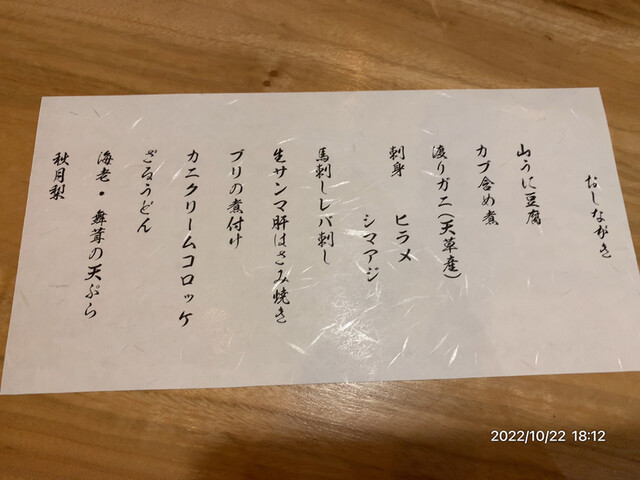 おしながき
山うに豆腐
カブ含め煮
渡りガニ(天草産)
刺身 ヒラメ
シマアジ
馬刺しレバ刺し
生サンマ肝はさみ焼き
ブリの煮付け
カニクリームコロッケ
ざるうどん
海老・舞茸の天ぷら
秋月梨
2022/10/22 18:12